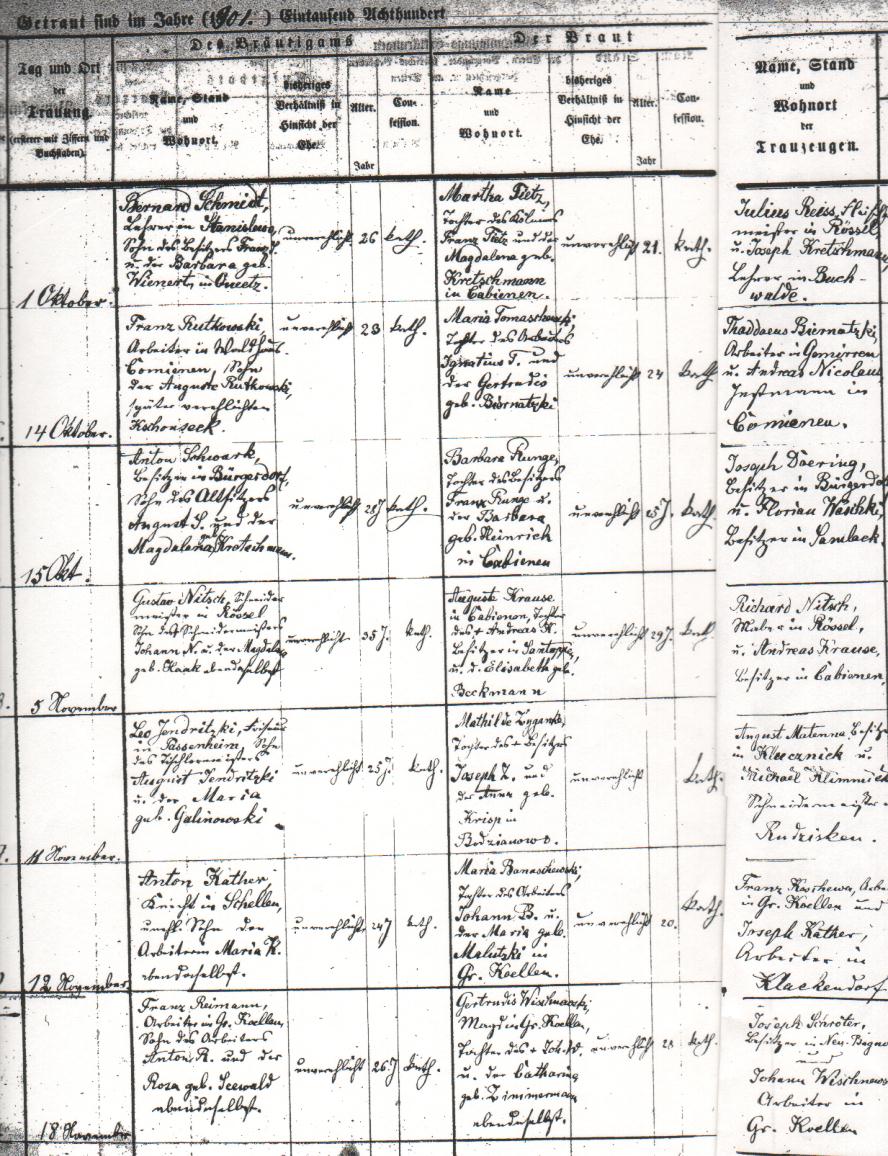 Getraut sind im Jahre (1901.) Eintausend Achthundert
Des Bräutigams
Der Braut
Tag und Ort
der
Trauung.
(ersterer mit Ziffern und
Buchstaben).
Name, Stand
und
Wohnort.
bisheriges
Verhältniß in
Hinsicht der
Ehe.
Alter.
Jahr
Con-
fession.
Name
und
Wohnort.
bisheriges
Verhältniß in
Hinsicht der
Ehe.
Alter.
Jahr
Con-
fession.
Name, Stand
und
Wohnort
der
Trauzeugen.
1 Oktober.
Bernard Schmidt,
Lehrer in
Sohn des Besitzers Franz S.
u. der Barbara geb.
Wienert, in Queetz.
unverehlicht
26
kath.
Martha Tietz,
Tochter des Kölmers
Franz Tietz und der
Magdalena geb.
Kretschmann
in Cabienen.
unverehlicht
21.
kath.
Julius Reiss,
meister in Rössel
u. Joseph Kretschmann
Lehrer in Buch-
walde.
14 Oktober.
Franz Rutkowski,
Arbeiter in Waldhaus
Comienen, Sohn
der Auguste Rutkowski,
später verehlichten
unverehlicht
23
kath.
Maria
Tochter des Arbeiters
Ignatius T. und
der Gertrudis
geb. Biernatzki
unverehlicht
24
kath.
Thaddaeus Biernatzki,
Arbeiter in
u. Andreas Nicolaus
Instmann in
Comienen.
15 Okt.
Anton Schwark,
Besitzer in Bürgerdorf,
Sohn des Altsitzers
August S. und der
Magdalena geb. Kretschmann.
unverehlicht
28 J
kath.
Barbara Runge,
Tochter des Besitzers
Franz Runge u.
der Barbara
geb. Heinrich
in Cabienen
unverehlicht
25 J.
kath.
Joseph Doering,
Besitzer in Bürgerdorf
u. Florian Waschki
Besitzer in Samlack.
5 November
Gustav Nitsch, Schneider
meister in Rössel
Sohn des Schneidermeisters
Johann N. u. der Magdalena
geb. Haak ebendaselbst
unverehlicht
35 J.
kath.
Auguste Krause
in Cabienen, Tochter
des + Andreas K.
Besitzer in Santoppen,
u. d. Elisabeth geb.
Beckmann
unverehlicht
29 J.
kath.
Richard Nitsch,
Maler in Rössel,
u. Andreas Krause,
Besitzer in Cabienen
11 November.
Leo Jendritzki, Friseur
in Passenheim, Sohn
des Tischlermeisters
August Jendritzki
u. der Maria
geb. Galinowski
unverehlicht
25 J.
kath.
Mathilde
Tochter des + Besitzers
Joseph Z. und
der Anna geb.
Krisp in
unverehlicht
kath.
August Matenna Besitzer
in Klucznick u.
Michael Klimmek
Schneidermeister
Rudzisken.
12 November.
Anton Kather,
Knecht in Schellen,
unehl. Sohn der
Arbeiterin Maria K.
ebendaselbst.
unverehlicht
24 J
kath.
Maria Banaschewski,
Tochter des Arbeiters
Johann B. u.
der Maria geb.
Malutzki in
Gr. Koellen.
unverehlicht
20.
kath.
Franz
in Gr. Koellen und
Joseph Kather,
Arbeiter in
Klackendorf
18 November
Franz Reimann,
Arbeiter in Gr. Koellen,
Sohn des Arbeiters
Anton R. und der
Rosa geb. Seewald
ebendaselbst.
unverehlicht
26 J
kath.
Gertrudis Wischnewski,
Magd in Gr. Koellen,
Tochter des + Joh. W.
u. der Catharina
geb. Zimmermann
ebendaselbst.
unverehlicht
28
kath.
Joseph Schröter,
Besitzer in Neu-Bagnowen
und
Johann Wischnewski
Arbeiter in
Gr. Koellen